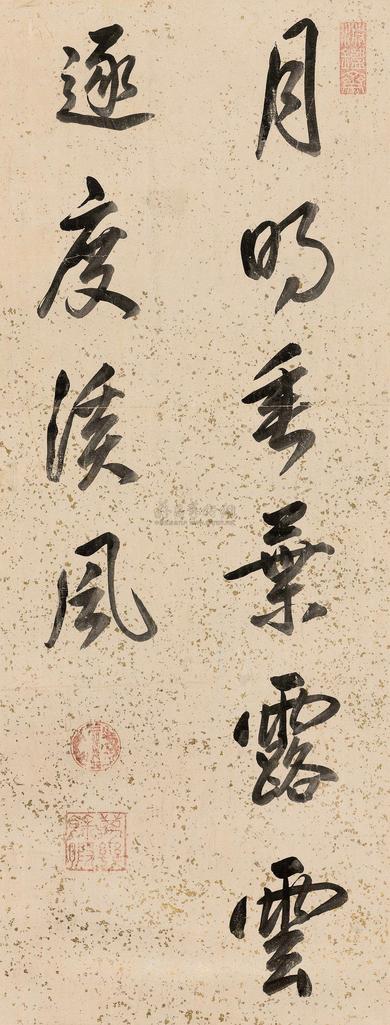 月明垂葉露雲
逐度溪風